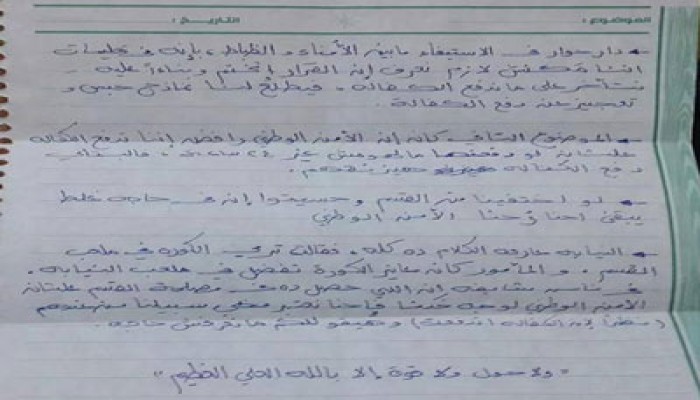 الموضوع : التاريخ :
دار حوار في الاستيفاء ما بين الأمناء و الظباط ، بإنه في تعليمات
إننا مكنش لازم نعرف إن القرار اتختم وبناءاً عليه
نتأخر على ما ندفع الكفالة ، فيطلع لسا نماذج حبس و
تعجيز عن دفع الكفالة .
الموضوع التاني كان إن الأمن الوطني رافض إننا ندفع الكفالة
علشان لو دفعتها ٢٤ ساعة ،
دفع الكفالة
لو اختفينا من القسم و حسيتوا إن في حاجة غلط
يبقى احنا رُحنا الأمن الوطني
النيابة عارفة الكلام ده كله ، فقالت ترمي الكورة في ملعب
القسم . و المأمور كان عايز الكورة تفضل في ملعب النيابة .
في ناس إن اللي حصل ده في مصلحة القسم علشان
الأمن الوطني لو جه خدنا فإحنا نعتبر مخلى سبيلنا من عندهم
( نظراً لإن الكفالة اندفعت ) و
« ولا حول ولا قوة إلا بالله العلي العظيم »